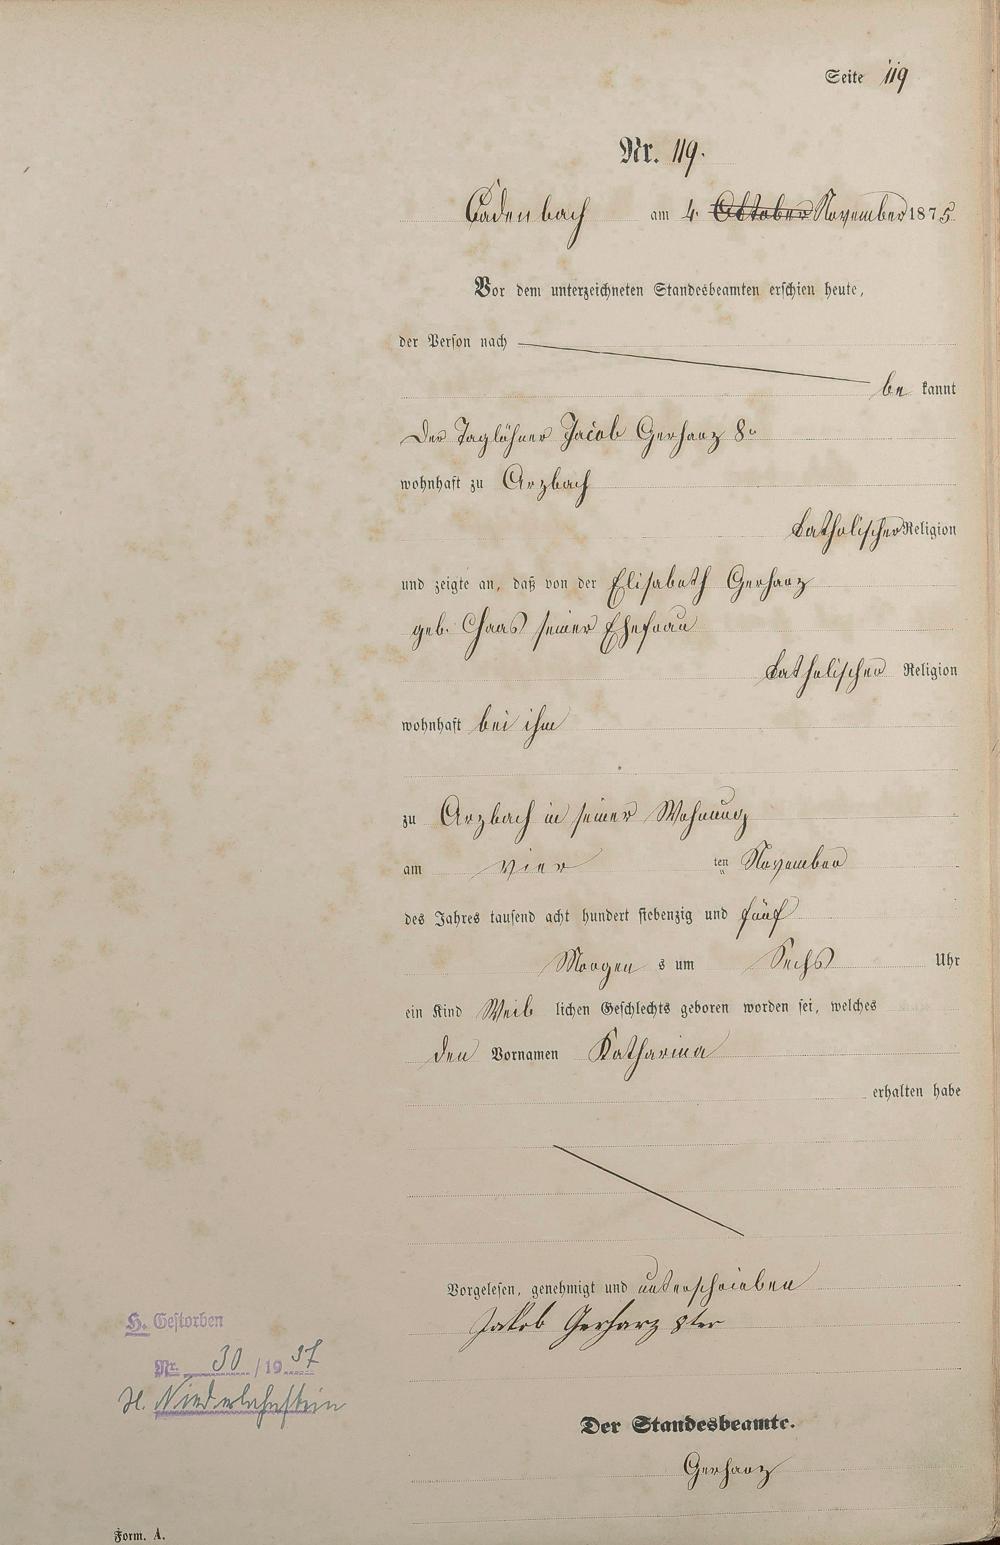 Seite 119
Nr. 119.
Cadenbach am 4. Oktober November 1875
Vor dem unterzeichneten Standesbeamten erschien heute,
der Person nach
be kannt
Der Taglöhner Jacob Gerharz 8r
wohnhaft zu Arzbach
katholischer Religion
und zeigte an, daß von der Elisabeth Gerharz
geb. Chaas seiner Ehefrau
katholischer Religion
wohnhaft bei ihm
zu Arzbach in seiner Wohnung
am vier ten November
des Jahres tausend acht hundert siebenzig und fünf
Morgen s um Sechs Uhr
ein Kind Weib lichen Geschlechts geboren worden sei, welches
den Vornamen Katharina
erhalten habe
Vorgelesen, genehmigt und unterschrieben
Jakob Gerharz 8ter
H. Gestorben
Nr. 30 / 19 37
St. Niederlahnstein
Der Standesbeamte.
Gerharz
Form. A.